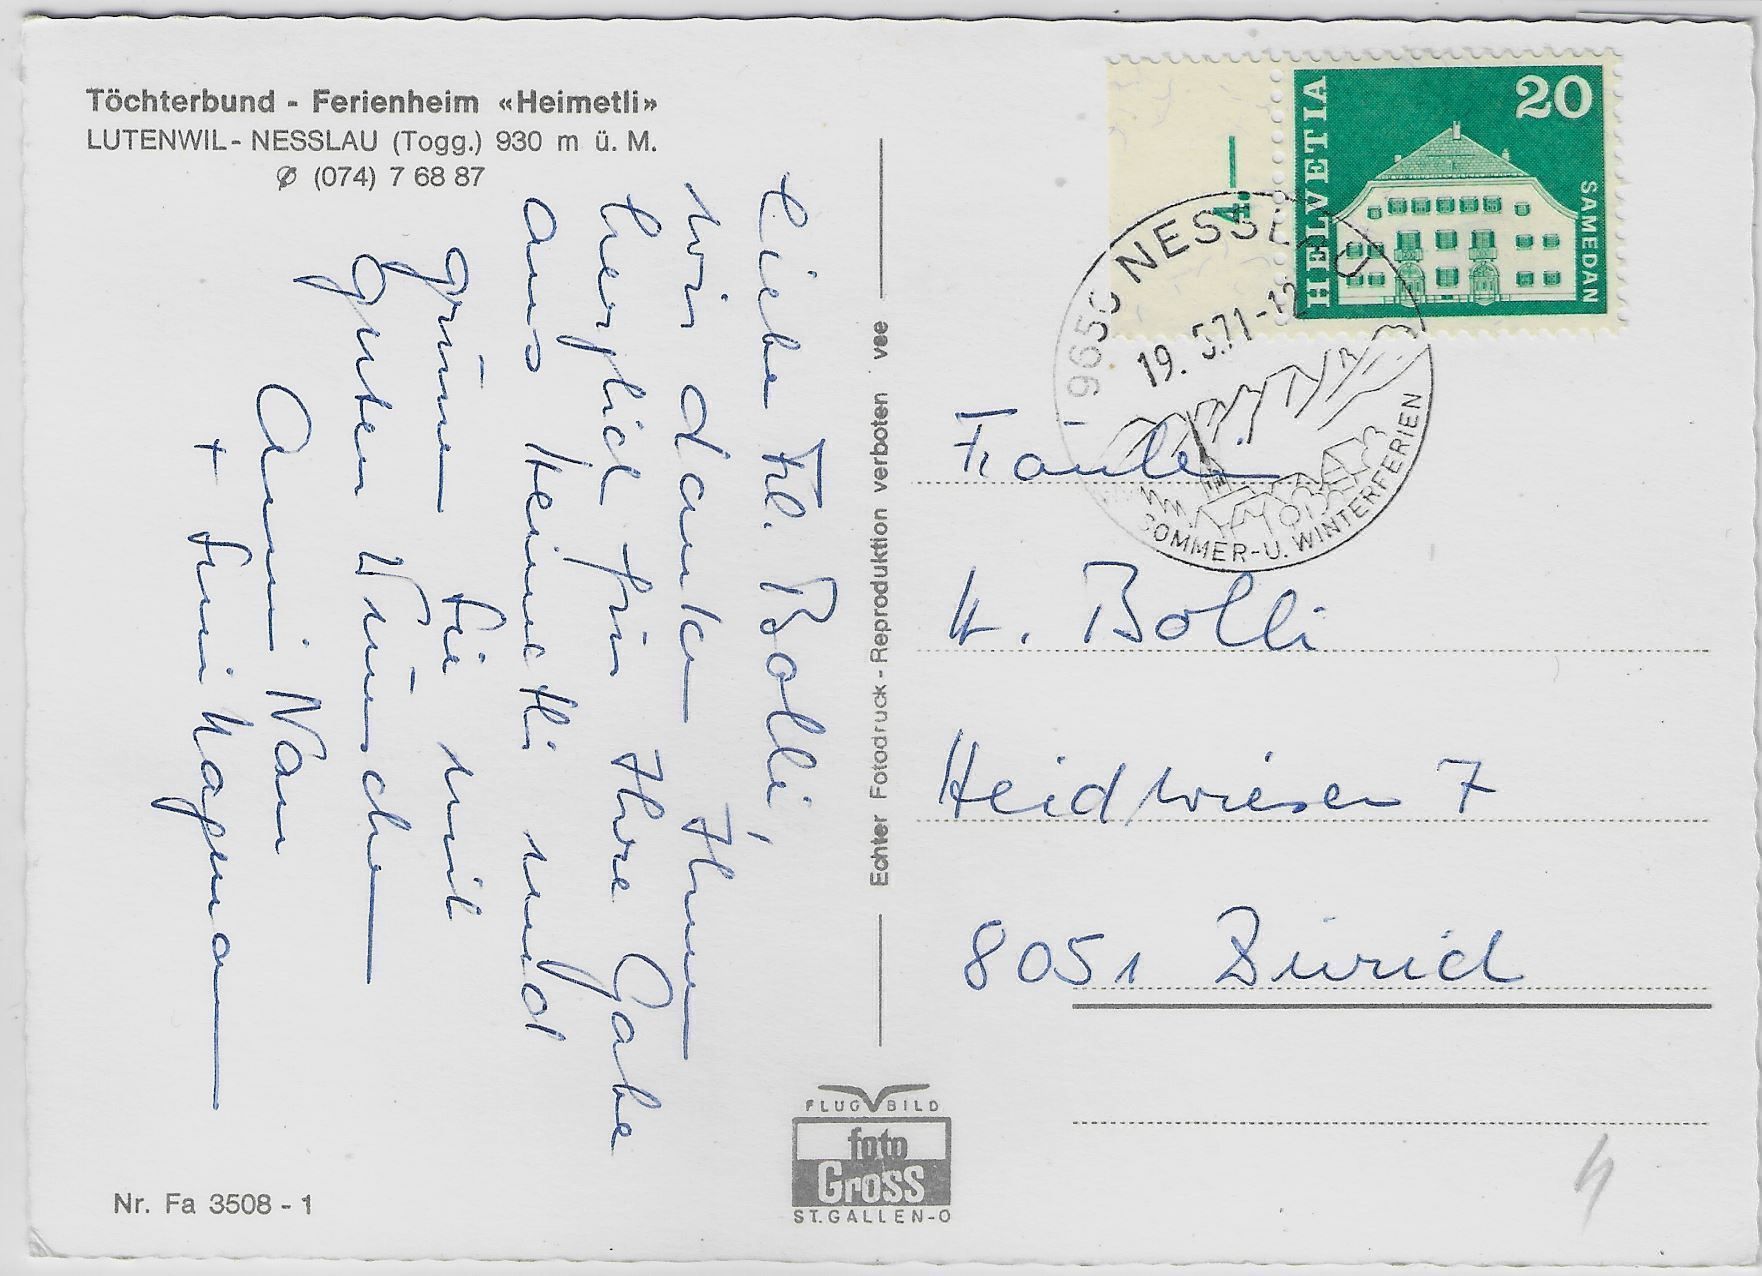 Töchterbund - Ferienheim «Heimetli»
LUTENWIL - NESSLAU (Togg.) 930 m ü. M.
(074) 7 68 87
Liebe Frl. Bolli,
wir danken Ihnen
herzlich für Ihre Gabe
ans Heimetli und
grüssen Sie mit
guten Wünschen
Anni Nau
+ Hagmann
Echter Fotodruck - Reproduktion verboten vee
HELVETIA
20
SAMEDAN
4.—
9650 NESSLAU
19. 5.71-12
SOMMER-U. WINTERFERIEN
Fräulein
H. Bolli
Heidwiesen 7
8051 Zürich
FLUG BILD
foto
Gross
ST. GALLEN-O
Nr. Fa 3508 - 1